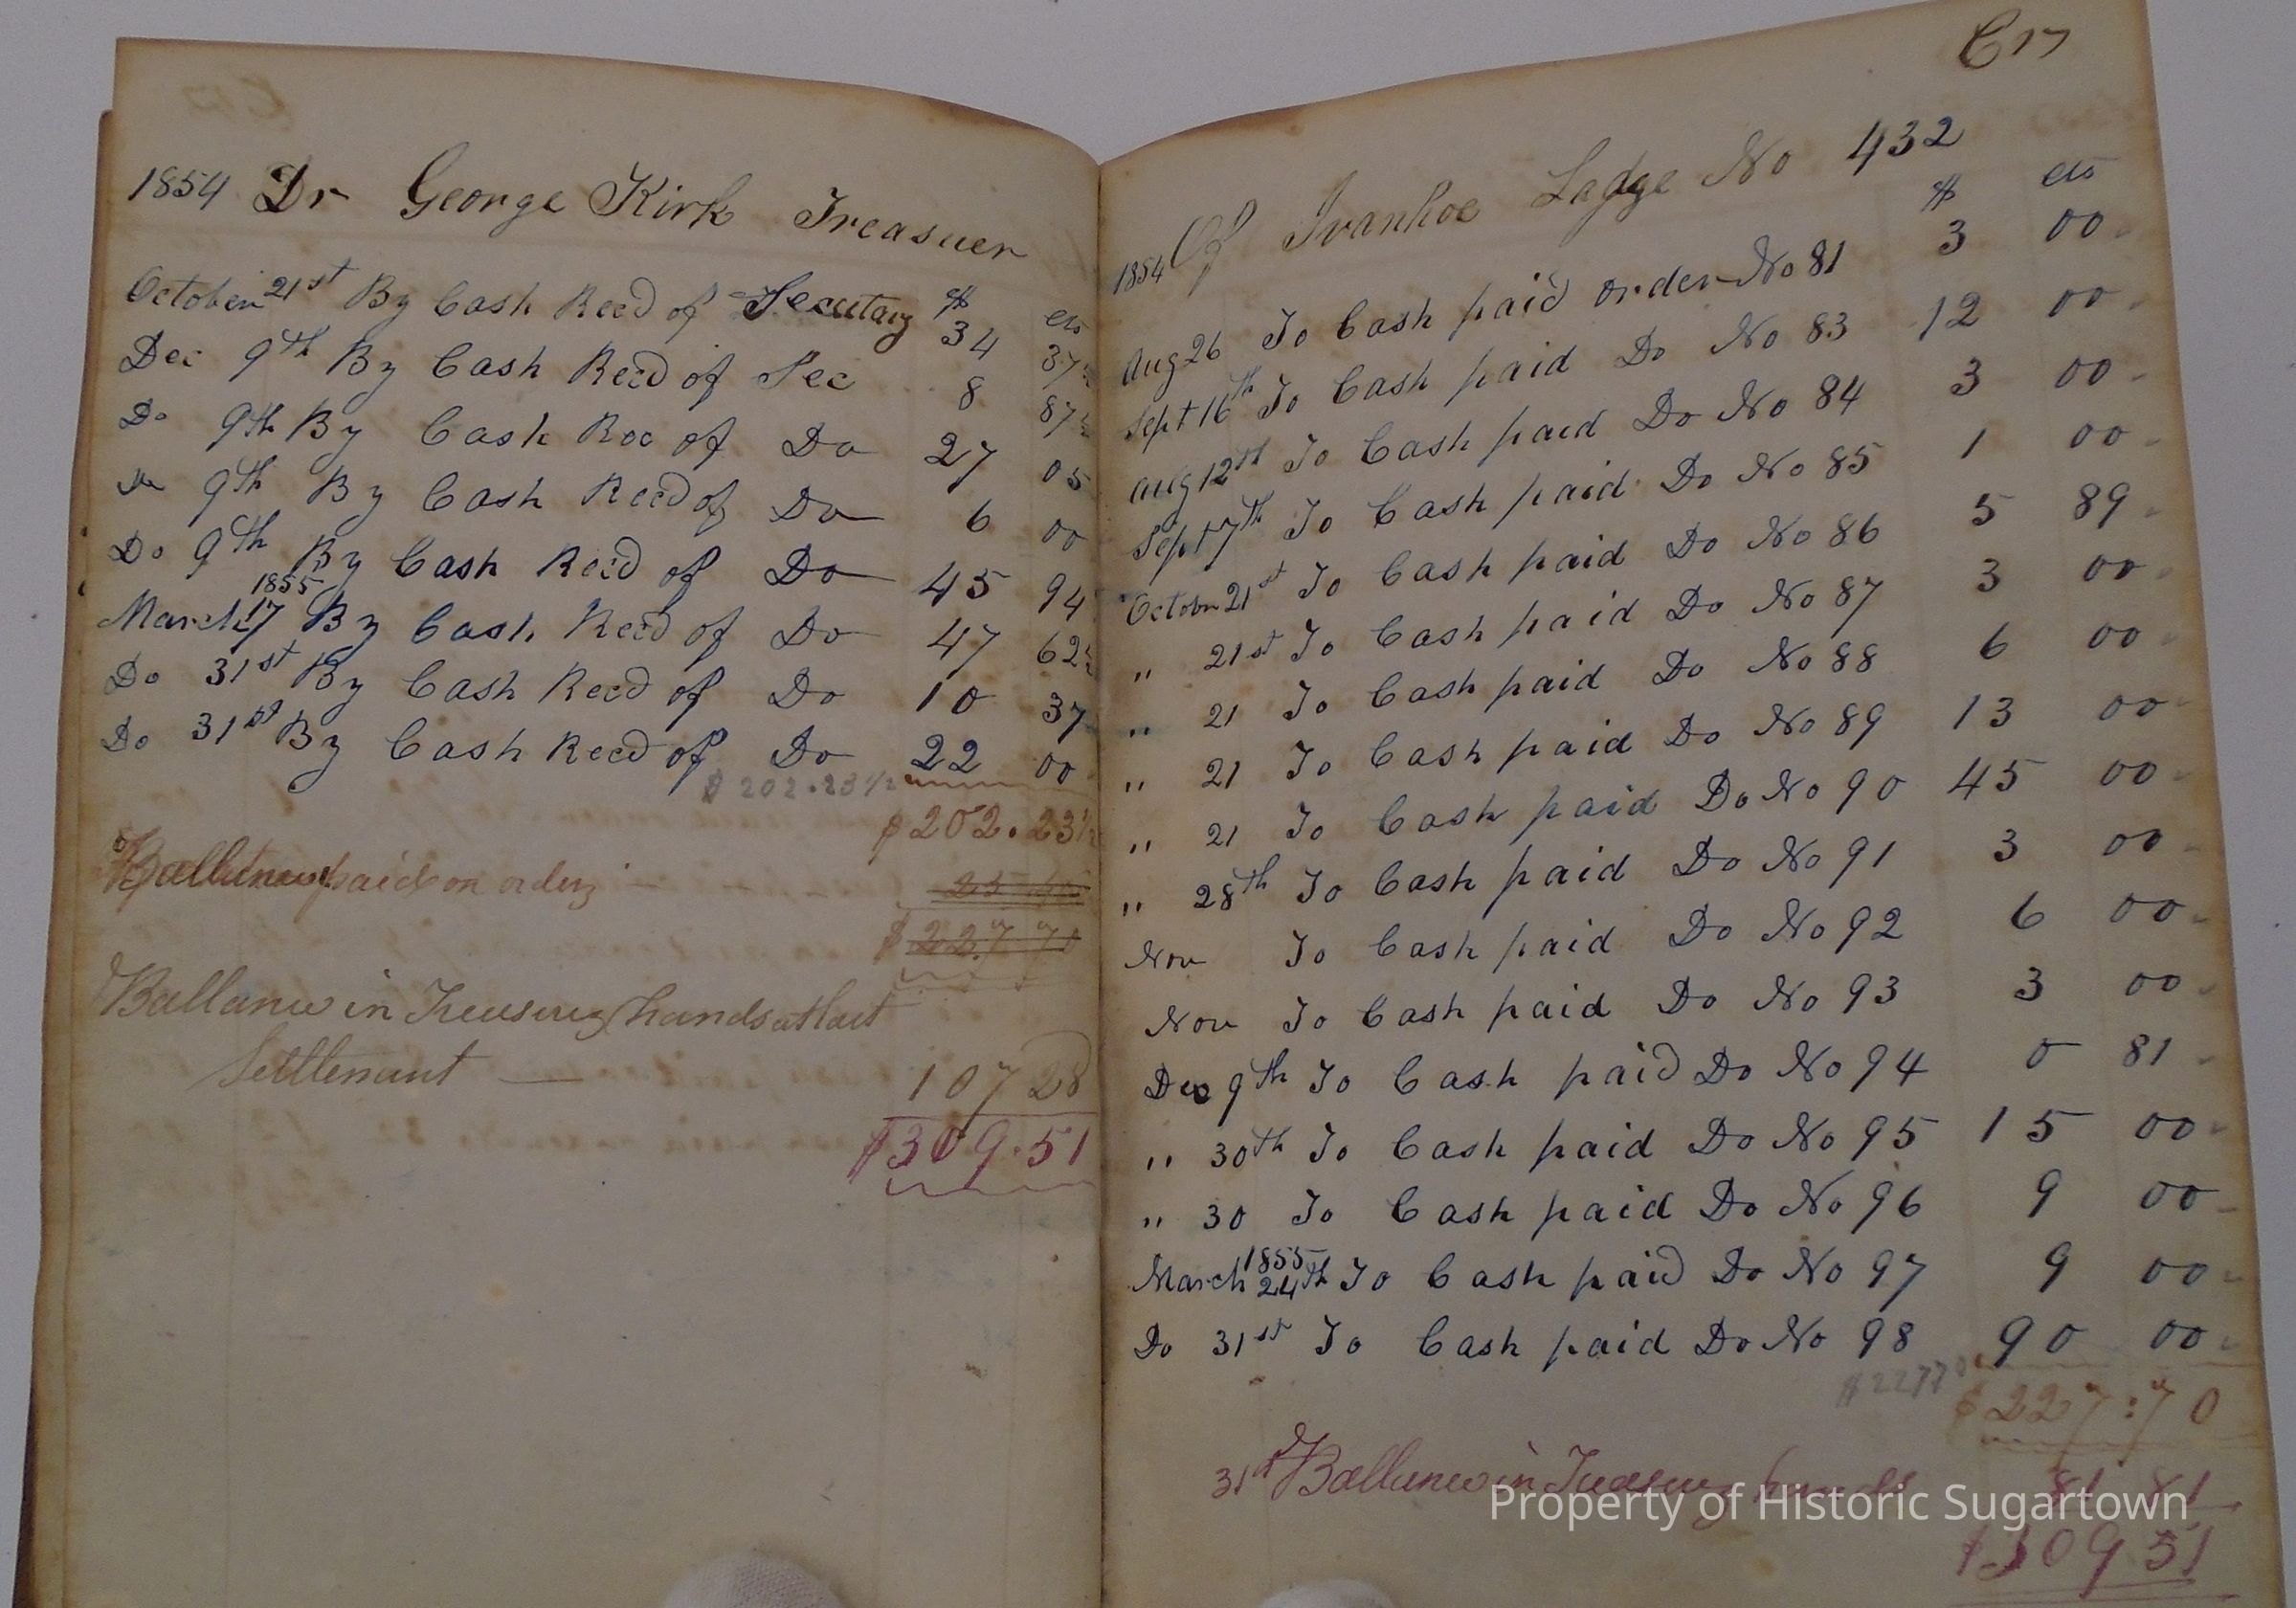 1854 Dr George Kirk Treasuer
$ cts
October 21st By Cash Recd of Secutary 34 37½
Dec 9th By Cash Recd of Sec 8 87½
Do 9th By Cash Rec of Do 27 05
Do 9th By Cash Recd of Do 6 00
Do 9th By Cash Recd of Do 45 94
1855
March 17 By Cash Recd of Do 47 62½
Do 31st By Cash Recd of Do 10 37
Do 31st By Cash Recd of Do 22 00
$ 202.23½
$ 202.23½
paid on orders
$ 227 70
Ballance in Treasurey hands at last
Settlemant — 107 28
$309.51
C 17
Of Ivanhoe Lodge No 432
1854 $ cts
Aug 26 To Cash paid order No 81 3 00
Sept 16th To Cash paid Do No 83 12 00
Aug 12th To Cash paid Do No 84 3 00
Sept 7th To Cash paid Do No 85 1 00
October 21st To Cash paid Do No 86 5 89
" 21st To Cash paid Do No 87 3 00
" 21 To Cash paid Do No 88 6 00
" 21 To Cash paid Do No 89 13 00
" 21 To Cash paid Do No 90 45 00
" 28th To Cash paid Do No 91 3 00
Nov To Cash paid Do No 92 6 00
Nov To Cash paid Do No 93 3 00
Dec 9th To Cash paid Do No 94 0 81
" 30th To Cash paid Do No 95 15 00
" 30 To Cash paid Do No 96 9 00
1855
March 24th To Cash paid Do No 97 9 00
Do 31st To Cash paid Do No 98 90 00
$2277
$ 227:70
31st Ballance in Treasurey hands 81 81
Property of Historic Sugartown
$309 51